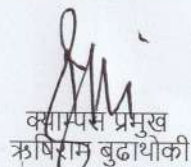 क्याम्पस प्रमुख
ऋषिराम बुढाथोकी